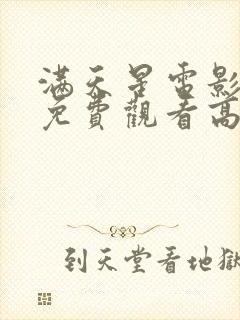 滿天星電影
免費觀看高
到天堂看地獄